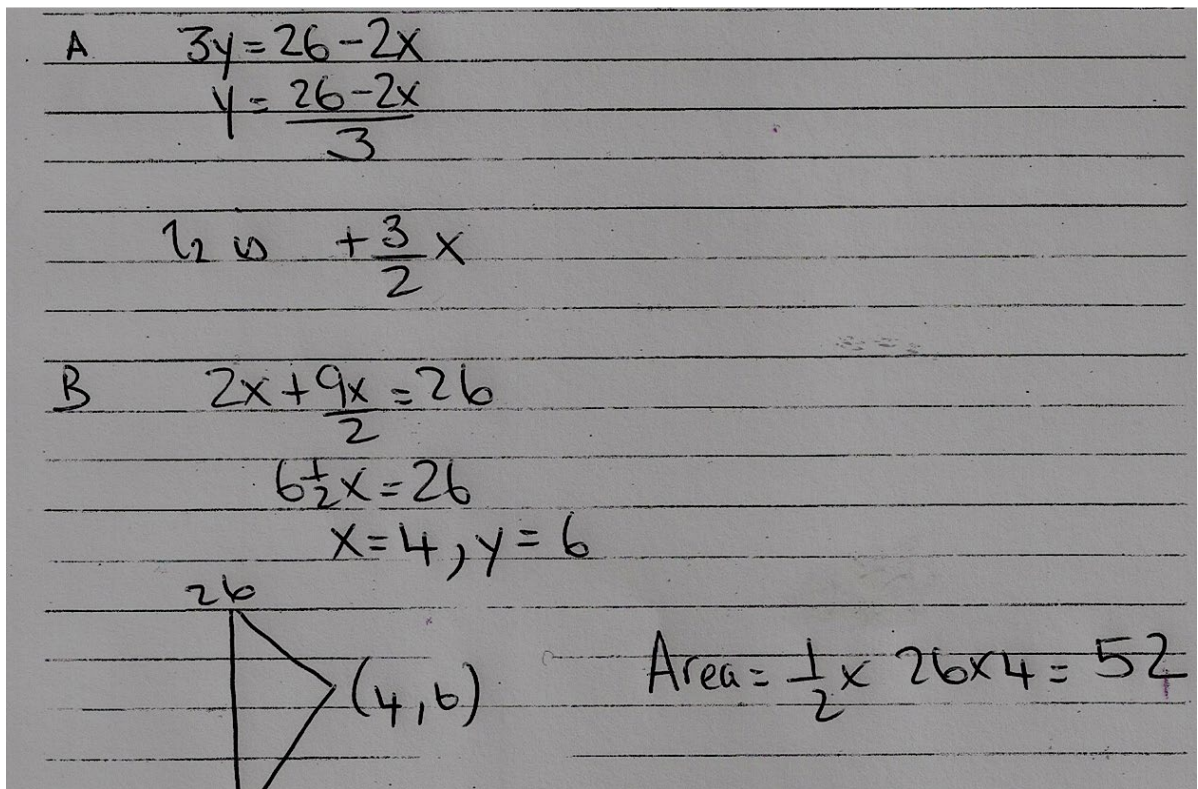 A 3y = 26 - 2x
y = 26 - 2x / 3
l₂ is + 3/2 x
B 2x + 9x/2 = 26
6 1/2 x = 26
x = 4, y = 6
26
(4, 6)
Area = 1/2 × 26 × 4 = 52